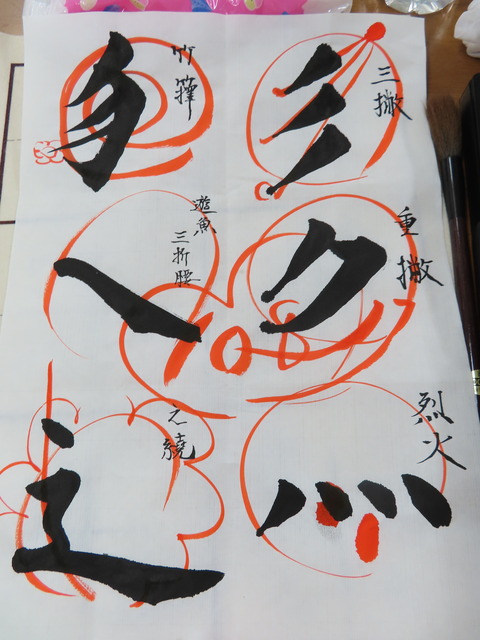 三撇
重撇
烈火
竹籜
遊魚
三折腰
之繞
108